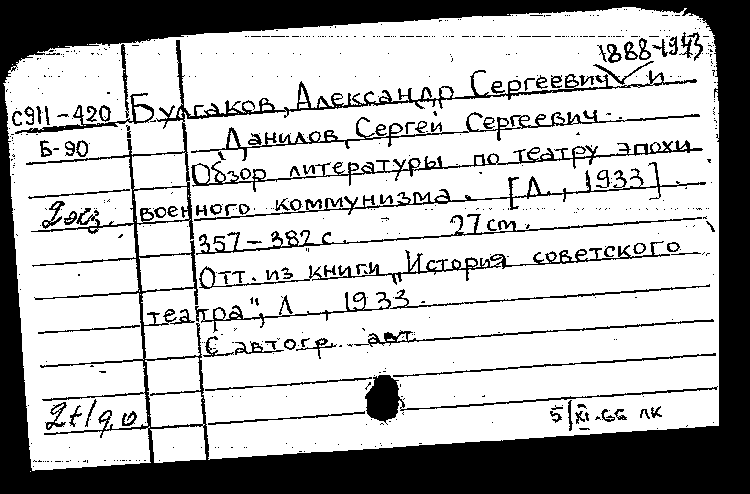 1888-1943
С911-420 Булгаков, Александр Сергеевич и
Б-90 Данилов, Сергей Сергеевич.
Обзор литературы по театру эпохи
2 экз. военного коммунизма. [Л., 1933].
357-382 с. 27 cm.
Отт. из книги „История советского
театра", Л., 1933.
С автогр. авт.
5/XI-66 ЛК